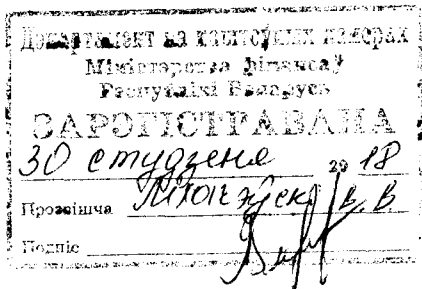 Дэпартамент па каштоўных паперах
Міністэрства фінансаў
Рэспублікі Беларусь
ЗАРЭГІСТРАВАНА
30 студзеня 20 18
Прозвішча В.В.
Подпіс